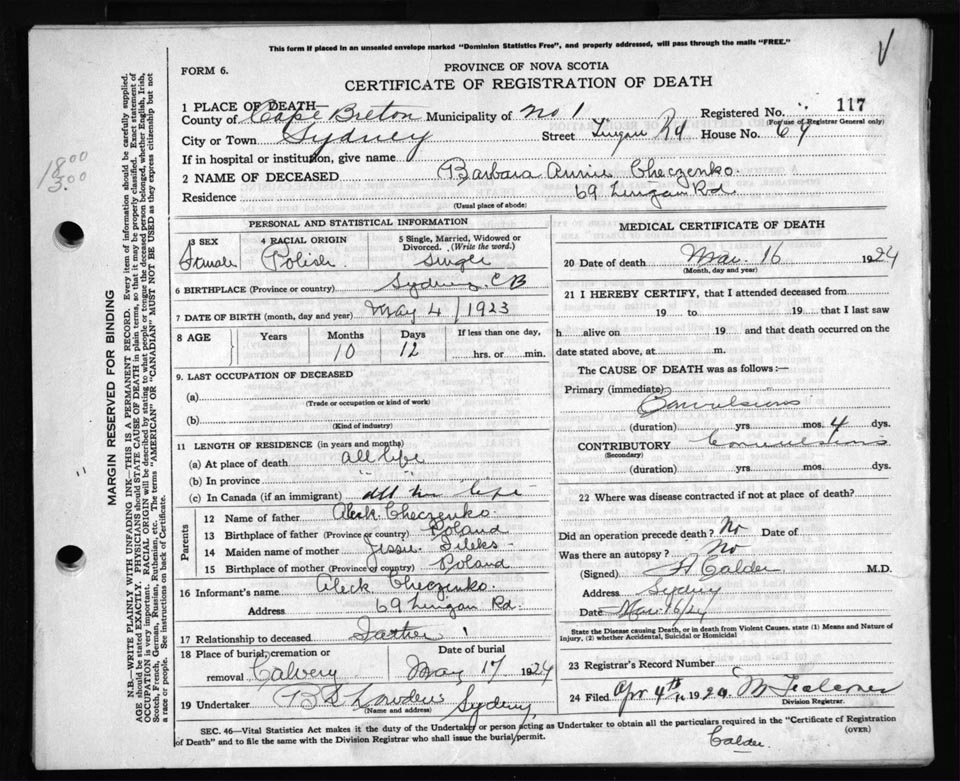 This form if placed in an unsealed envelope marked "Dominion Statistics Free", and properly addressed, will pass through the mails "FREE."
FORM 6.
PROVINCE OF NOVA SCOTIA
CERTIFICATE OF REGISTRATION OF DEATH
1 PLACE OF DEATH—
County of Cape Breton Municipality of No 1 Registered No. 117
(For use of Registrar General only)
City or Town Sydney Street Lingan Rd House No. 69
If in hospital or institution, give name
2 NAME OF DECEASED Barbara Annie Checzenko.
Residence 69 Lingan Rd
(Usual place of abode)
1800
3.00
MARGIN RESERVED FOR BINDING
N.B.—WRITE PLAINLY WITH UNFADING INK—THIS IS A PERMANENT RECORD. Every item of information should be carefully supplied.
AGE should be stated EXACTLY. PHYSICIANS should STATE CAUSE OF DEATH in plain terms, so that it may be properly classified. Exact statement of
OCCUPATION is very important. RACIAL ORIGIN will be described by stating to what people or tongue the deceased person belonged, whether English, Irish,
Scotch, French, German, Russian, Ruthenian, etc. The terms "AMERICAN" or "CANADIAN" MUST NOT BE USED as they express citizenship but not
a race or people. See instructions on back of Certificate.
PERSONAL AND STATISTICAL INFORMATION
3 SEX Female
4 RACIAL ORIGIN Polish
5 Single, Married, Widowed or Divorced. (Write the word.) Single
6 BIRTHPLACE (Province or country) Sydney, CB
7 DATE OF BIRTH (month, day and year) May 4 / 1923
8 AGE Years Months Days If less than one day,
10 12 hrs. or min.
9. LAST OCCUPATION OF DECEASED
(a)
(Trade or occupation or kind of work)
(b)
(Kind of industry)
11 LENGTH OF RESIDENCE (in years and months)
(a) At place of death all life
(b) In province " "
(c) In Canada (if an immigrant) all her life
Parents
12 Name of father Aleck Checzenko.
13 Birthplace of father (Province or country) Poland
14 Maiden name of mother Jessie
15 Birthplace of mother (Province or country) Poland
16 Informant's name Aleck Checzenko.
Address 69 Lingan Rd.
17 Relationship to deceased Father
18 Place of burial, cremation or Date of burial
removal Calvery May 17 1924
19 Undertaker Sydney
(Name and address)
MEDICAL CERTIFICATE OF DEATH
20 Date of death Mar. 16 1924
(Month, day and year)
21 I HEREBY CERTIFY, that I attended deceased from
19 to 19 that I last saw
h alive on 19 and that death occurred on the
date stated above, at m.
The CAUSE OF DEATH was as follows:—
Primary (immediate)
Convulsions
(duration) yrs. mos. 4 dys.
CONTRIBUTORY Convulsions
(Secondary)
(duration) yrs. mos. dys.
22 Where was disease contracted if not at place of death?
Did an operation precede death? No Date of
Was there an autopsy? No
(Signed) Calder M.D.
Address Sydney
Date Mar 16/24
State the Disease causing Death, or in death from Violent Causes, state (1) Means and Nature of
Injury, (2) whether Accidental, Suicidal or Homicidal
23 Registrar's Record Number
24 Filed Apr 4th 1924
Division Registrar.
SEC. 46—Vital Statistics Act makes it the duty of the Undertaker or person acting as Undertaker to obtain all the particulars required in the "Certificate of Registration
of Death" and to file the same with the Division Registrar who shall issue the burial permit. (OVER)
Calder.